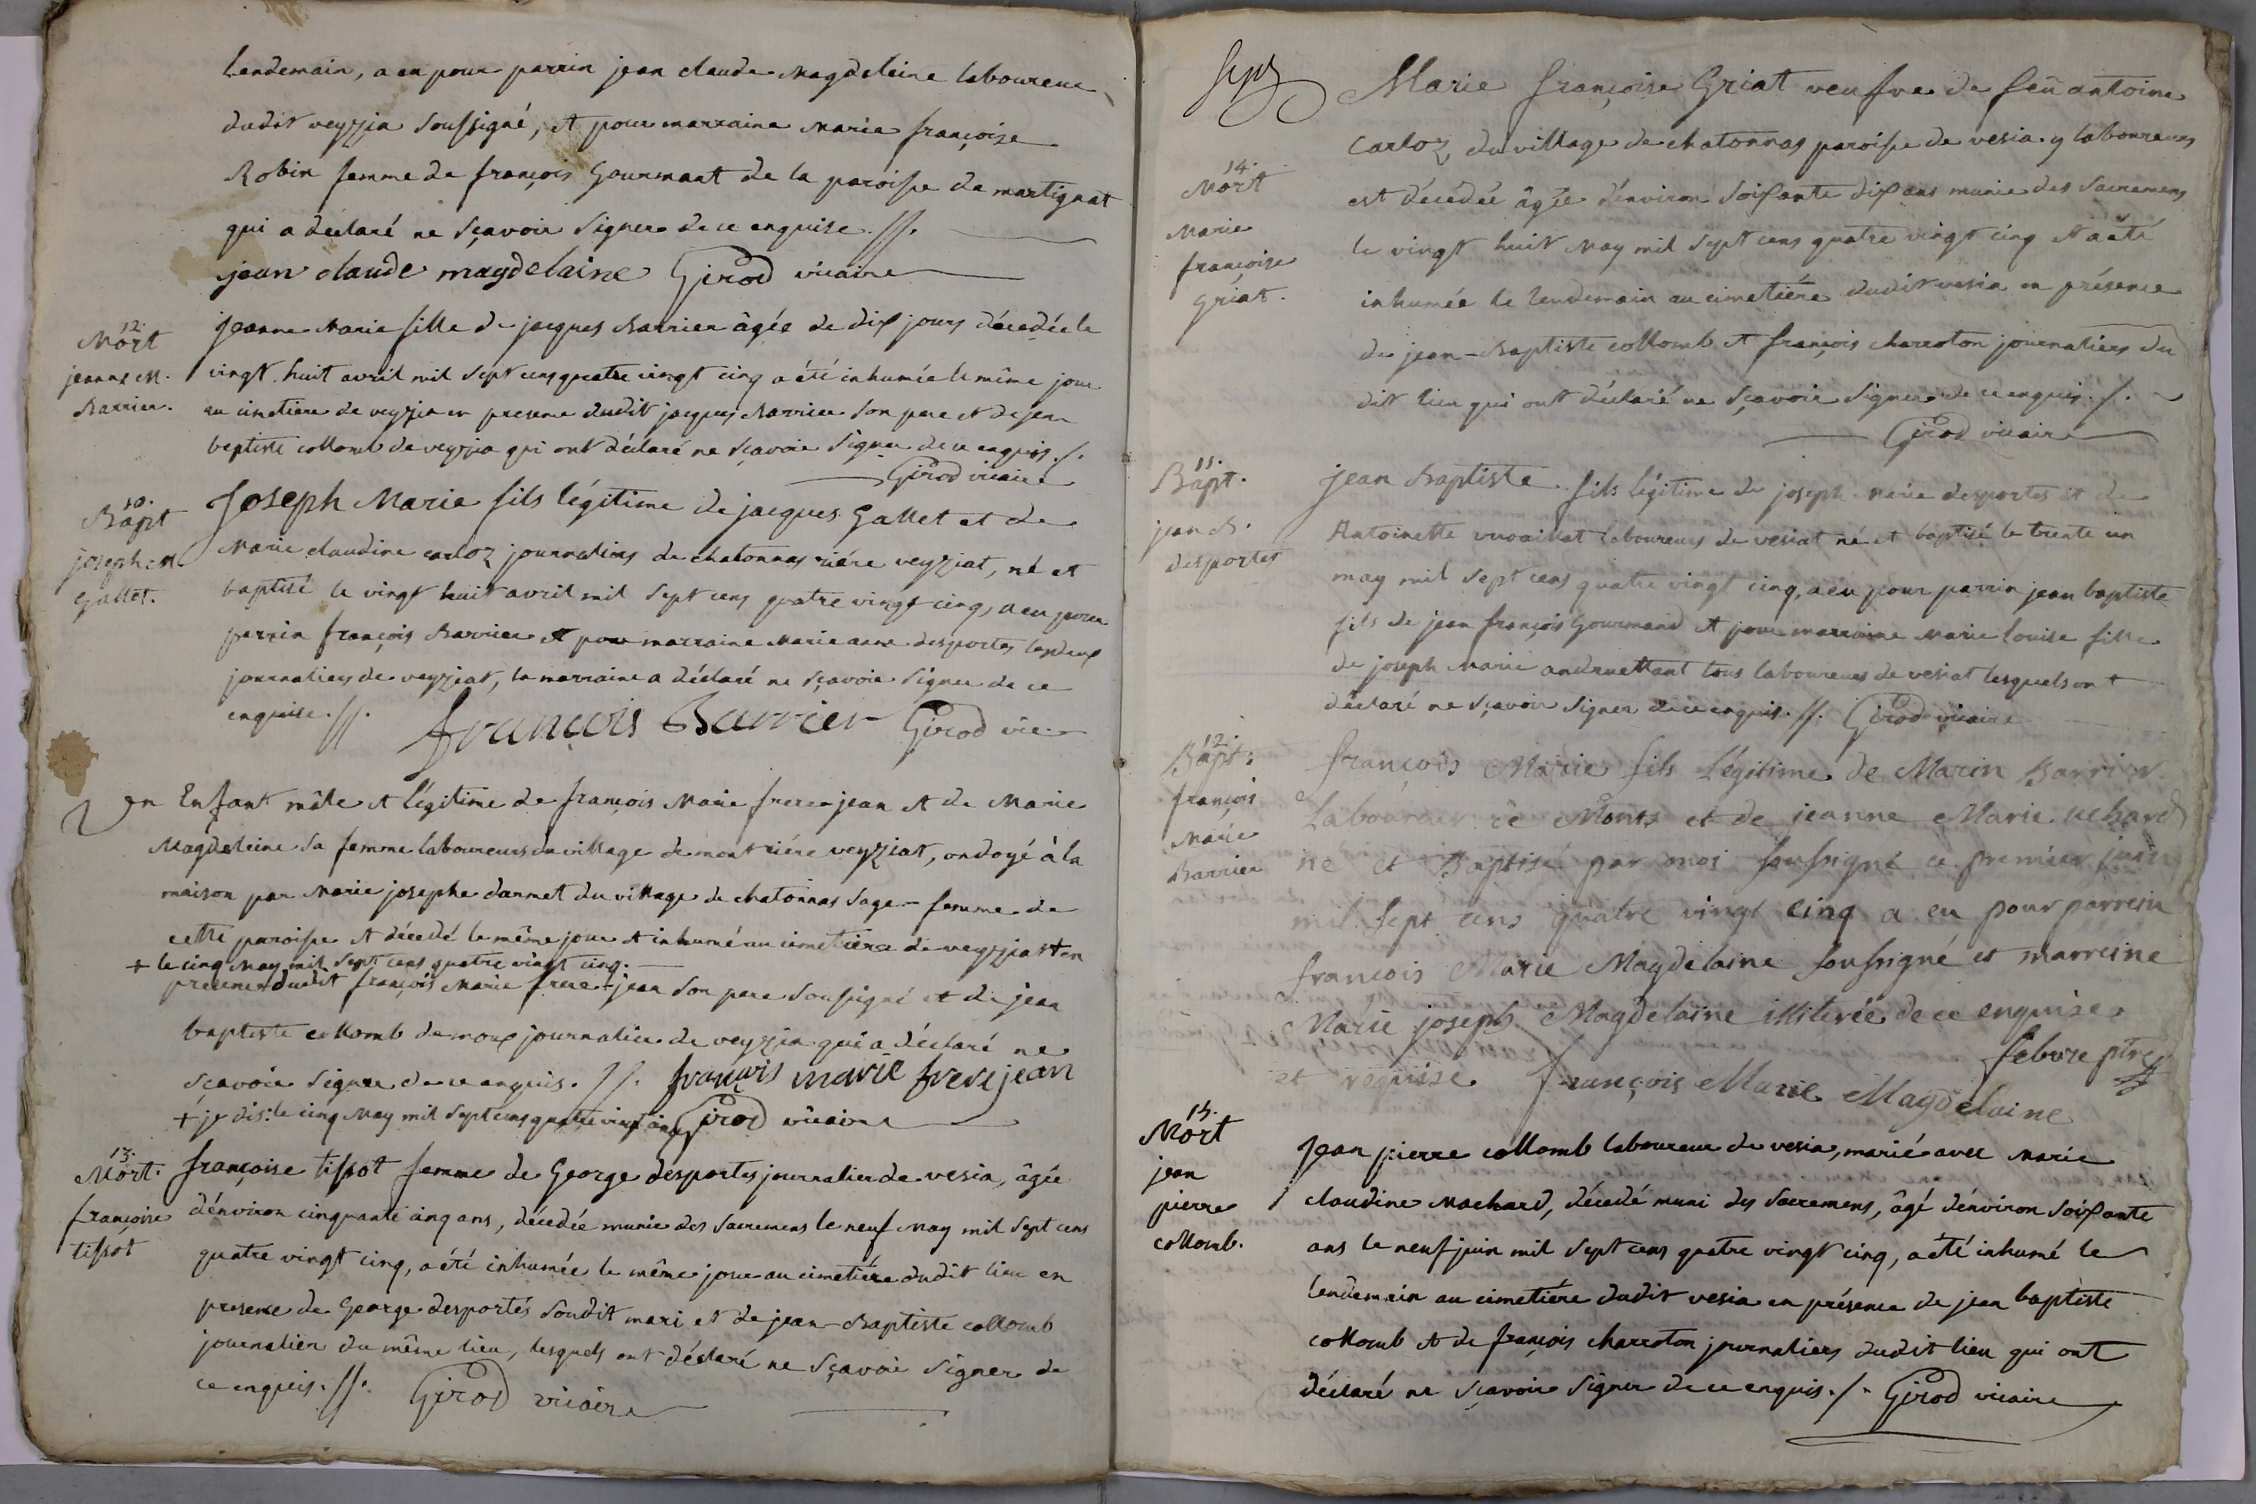 lendemain, a eu pour parrin jean claude Magdeleine laboureur
dudit veyzia soussigné, et pour marraine Marie françoise
Robin femme de françois Gourmant de la paroisse de martignat
qui a déclaré ne sçavoir signer de ce enquise ./.
jean claude magdelaine Girod vicaire
12.
Mort
jeanne M.
Barrier.
jeanne Marie fille de jacques Barrier âgée de dix jours décedée le
vingt huit avril mil sept cens quatre vingt cinq a été inhumée le même jour
au cimetiere de veyzia en presence dudit jacques Barrier son pere et de jean
baptiste collomb de veyzia qui ont déclaré ne sçavoir signer de ce enquis ./.
Girod vicaire
10.
Bapt
joseph M.
Gallet.
Joseph Marie fils légitime de jacques Gallet et de
Marie claudine carloz journaliers de chatonnas riére veyziat, né et
baptisé le vingt huit avril mil sept cens quatre vingt cinq, a eu pour
parrin françois Barrier et pour marraine Marie anne desportes les deux
journaliers de veyziat, la marraine a déclaré ne sçavoir signer de ce
enquise ./. françois Barrier Girod vic.
Un Enfant mâle et légitime de françois Marie frere-jean et de Marie
Magdeleine sa femme laboureurs du village de mont riére veyziat, ondoyé à la
maison par Marie josephe dannet du village de chatonnas sage-femme de
cette paroisse et décedé le même jour et inhumé au cimetiére de veyziat + en
+ le cinq May mil sept cens quatre vingt cinq.
presence dudit françois Marie frere-jean son pere soussigné et de jean
baptiste collomb demoux journalier de veyzia qui a déclaré ne
sçavoir signer de ce enquis ./. françois marie frere jean
+ je dis: le cinq May mil sept cens quatre vingt cinq Girod vicaire
13.
Mort.
françoise
tissot
françoise tissot femme de George desportes journalier de vesia, âgée
d'énviron cinquante cinq ans, décedée munie des sacremens le neuf May mil sept cens
quatre vingt cinq, a été inhumée le même jour au cimetiére dudit lieu en
presence de George desportes soudit mari et de jean-Baptiste collomb
journalier du même lieu, lesquels ont déclaré ne sçavoir signer de
ce enquis ./. Girod vicaire
sept
14.
Mort
Marie
françoise
Griat.
Marie françoise Griat veufve de feu antoine
Carloz, du village de chatonnas paroisse de vesia y laboureurs
est décédée âgée d'énviron soixante dix ans munie des sacremens
le vingt huit May mil sept cens quatre vingt cinq et a été
inhumée le lendemain au cimetiére dudit vesia en présence
de jean-Baptiste collomb et françois charroton journaliers du
dit lieu qui ont déclaré ne sçavoir signer de ce enquis ./.
Girod vicaire
11.
Bapt.
jean B.
desportes
jean Baptiste fils légitime de joseph Marie desportes et de
Antoinette laboureurs de vesiat né et baptisé le trente un
may mil sept cens quatre vingt cinq, a eu pour parrin jean baptiste
fils de jean françois Gourmand et pour marraine Marie louise fille
de joseph Marie andruettant tous laboureurs de vesiat lesquels ont
déclaré ne sçavoir signer de ce enquis ./. Girod vicaire
12.
Bapt.
françois
Marie
Barrier
françois Marie fils légitime de Marin Barrier
Laboureur Monts et de jeanne Marie uchard
né et Baptisé par moi soussigné ce premier juin
mil sept cens quatre vingt cinq a eu pour parrein
françois Marie Magdelaine soussigné et marreine
Marie joseph Magdelaine illiterée de ce enquise
et requise febvre ptre
françois Marie Magdelaine
15.
Mort
jean
pierre
collomb.
Jean pierre collomb laboureur de vesia, marié avec Marie
claudine Machard, décedé muni des sacremens, âgé d'énviron soixante
ans le neuf juin mil sept cens quatre vingt cinq, a été inhumé le
lendemain au cimetiére dudit vesia en présence de jean baptiste
collomb et de françois charroton journaliers dudit lieu qui ont
déclaré ne sçavoir signer de ce enquis ./. Girod vicaire